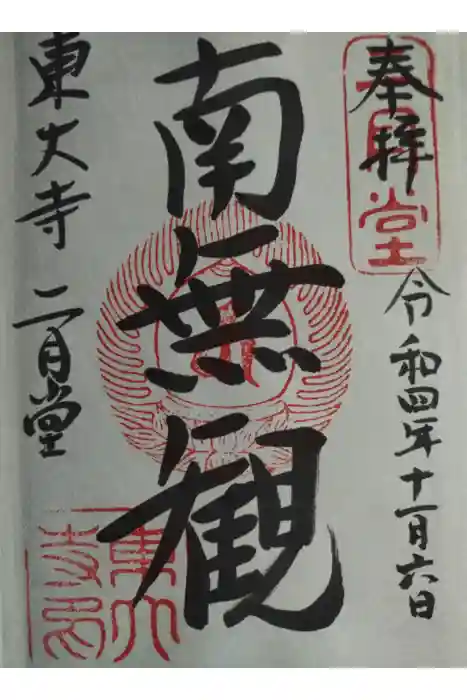 奉拝
二月堂
令和四年十一月六日
南無観
東大寺 二月堂